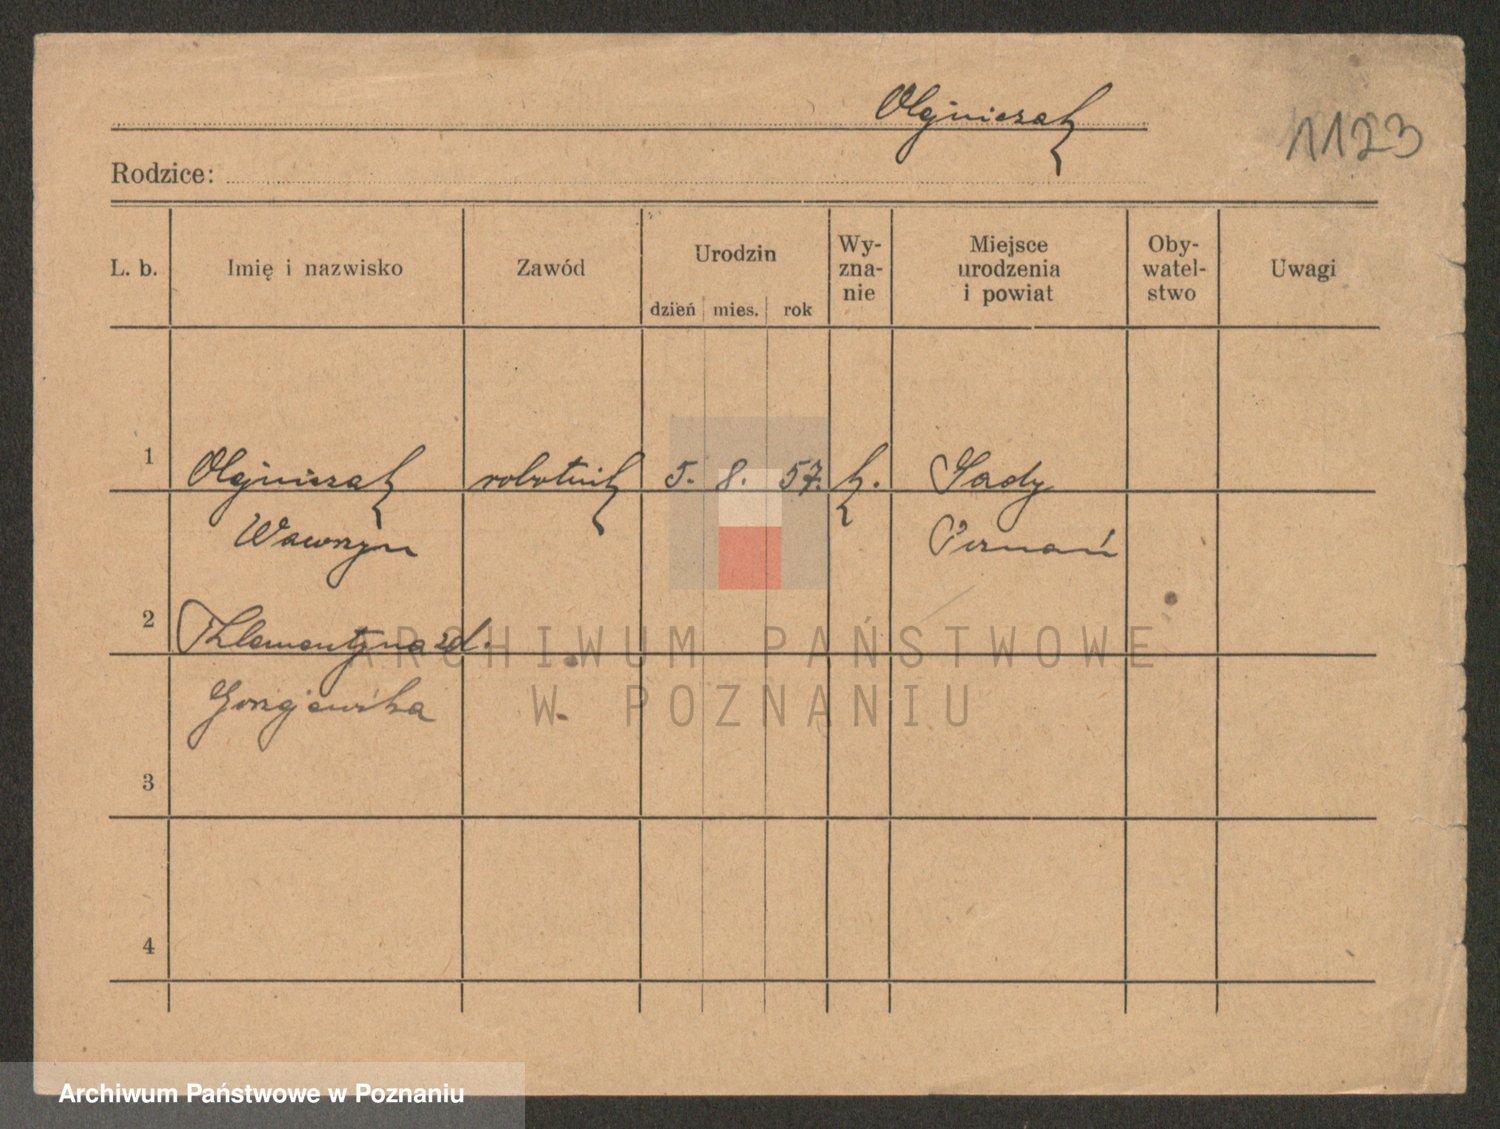 Olejniczak
1123
Rodzice:
L. b. Imię i nazwisko Zawód Urodzin dzień mies. rok Wy-zna-nie Miejsce urodzenia i powiat Oby-watel-stwo Uwagi
1 Olejniczak robotnik 5. 8. 57. k. Sady
Wawrzyn Poznań
2 Klementyna zd.
Gorzejewska
3
4
ARCHIWUM PAŃSTWOWE
W POZNANIU
Archiwum Państwowe w Poznaniu